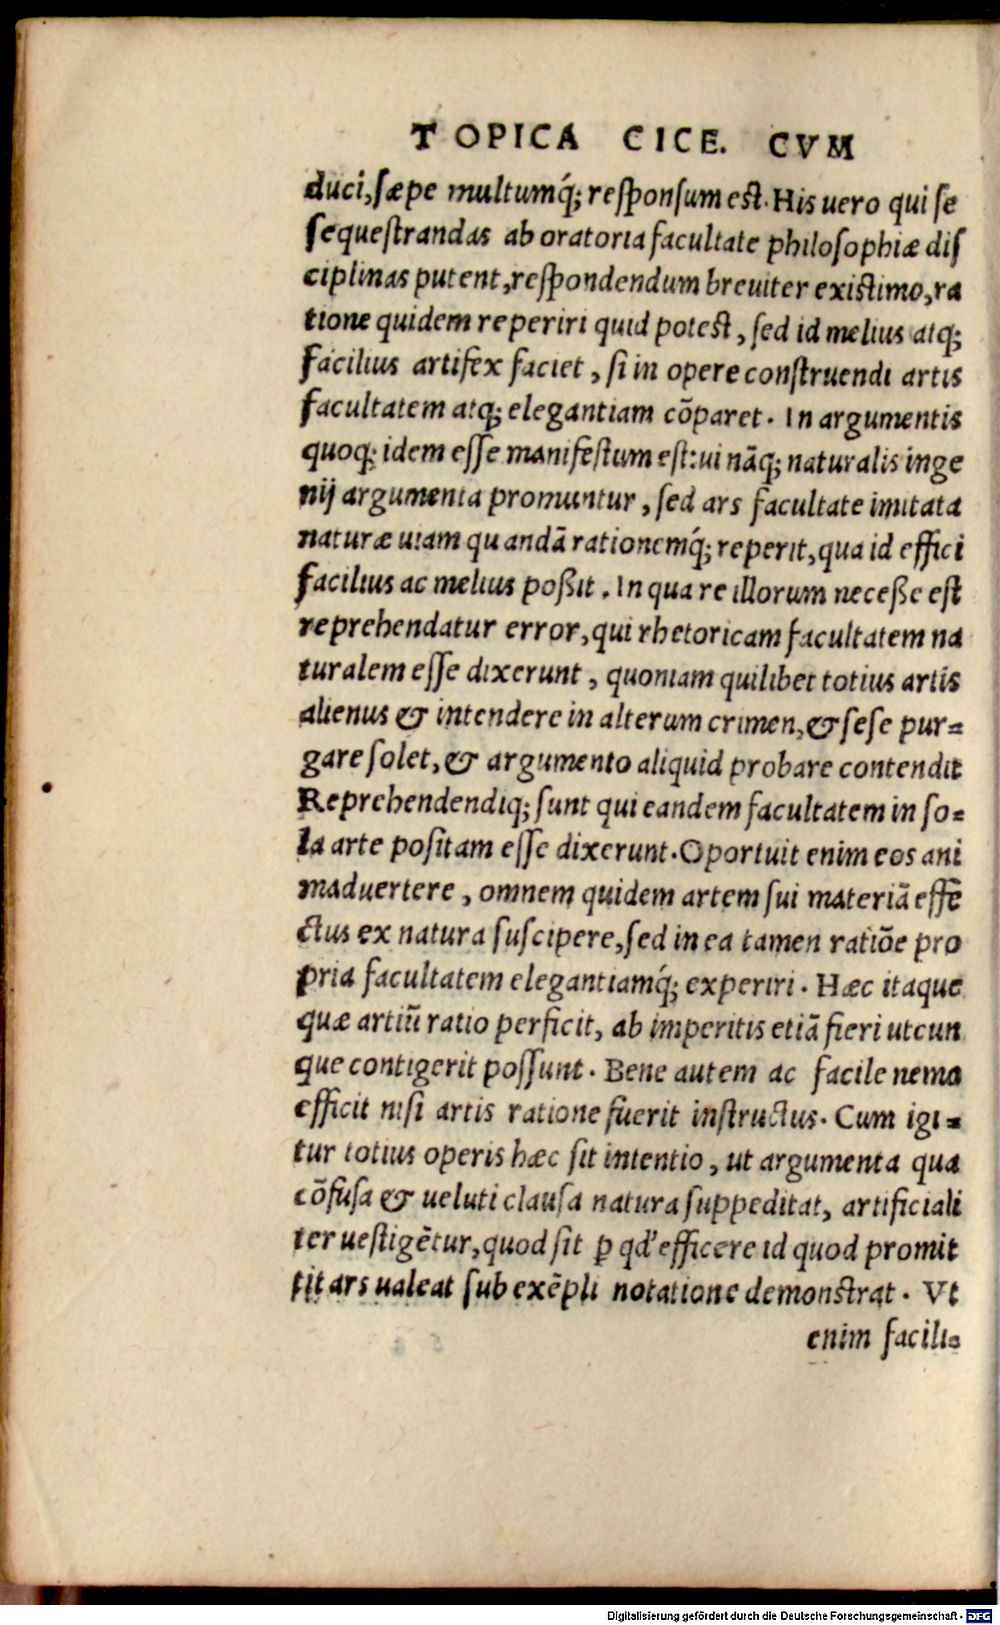 TOPICA CICE. CVM
duci, sæpe multumq́; responsum est. His uero qui se
sequestrandas ab oratoria facultate philosophiæ dis
ciplinas putent, respondendum breuiter existimo, ra
tione quidem reperiri quid potest, sed id melius atq;
facilius artifex faciet, si in opere construendi artis
facultatem atq; elegantiam cõparet. In argumentis
quoq; idem esse manifestum est: ui nãq; naturalis inge
nij argumenta promuntur, sed ars facultate imitata
naturæ uiam quandã rationemq́; reperit, qua id effici
facilius ac melius poßit. In qua re illorum neceße est
reprehendatur error, qui rhetoricam facultatem na
turalem esse dixerunt, quoniam quilibet totius artis
alienus & intendere in alterum crimen, & sese pur-
gare solet, & argumento aliquid probare contendit
Reprehendendiq; sunt qui eandem facultatem in so-
la arte positam esse dixerunt. Oportuit enim eos ani
maduertere, omnem quidem artem sui materiã effe
ctus ex natura suscipere, sed in ea tamen ratiõe pro
pria facultatem elegantiamq́; experiri. Hæc itaque
quæ artiũ ratio perficit, ab imperitis etiã fieri utcun
que contigerit possunt. Bene autem ac facile nemo
efficit nisi artis ratione fuerit instructus. Cum igi-
tur totius operis hæc sit intentio, ut argumenta qua
cõfusa & ueluti clausa natura suppeditat, artificiali
ter uestigẽtur, quod sit ꝑ qd' efficere id quod promit
tit ars ualeat sub exẽpli notatione demonstrat. Vt
enim facili-
Digitalisierung gefördert durch die Deutsche Forschungsgemeinschaft - DFG